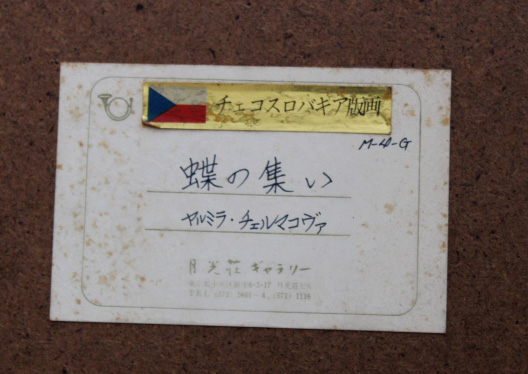 チェコスロバキア版画
M-4-G
蝶の集い
ヤルミラ・チェルマコヴァ
月光荘ギャラリー